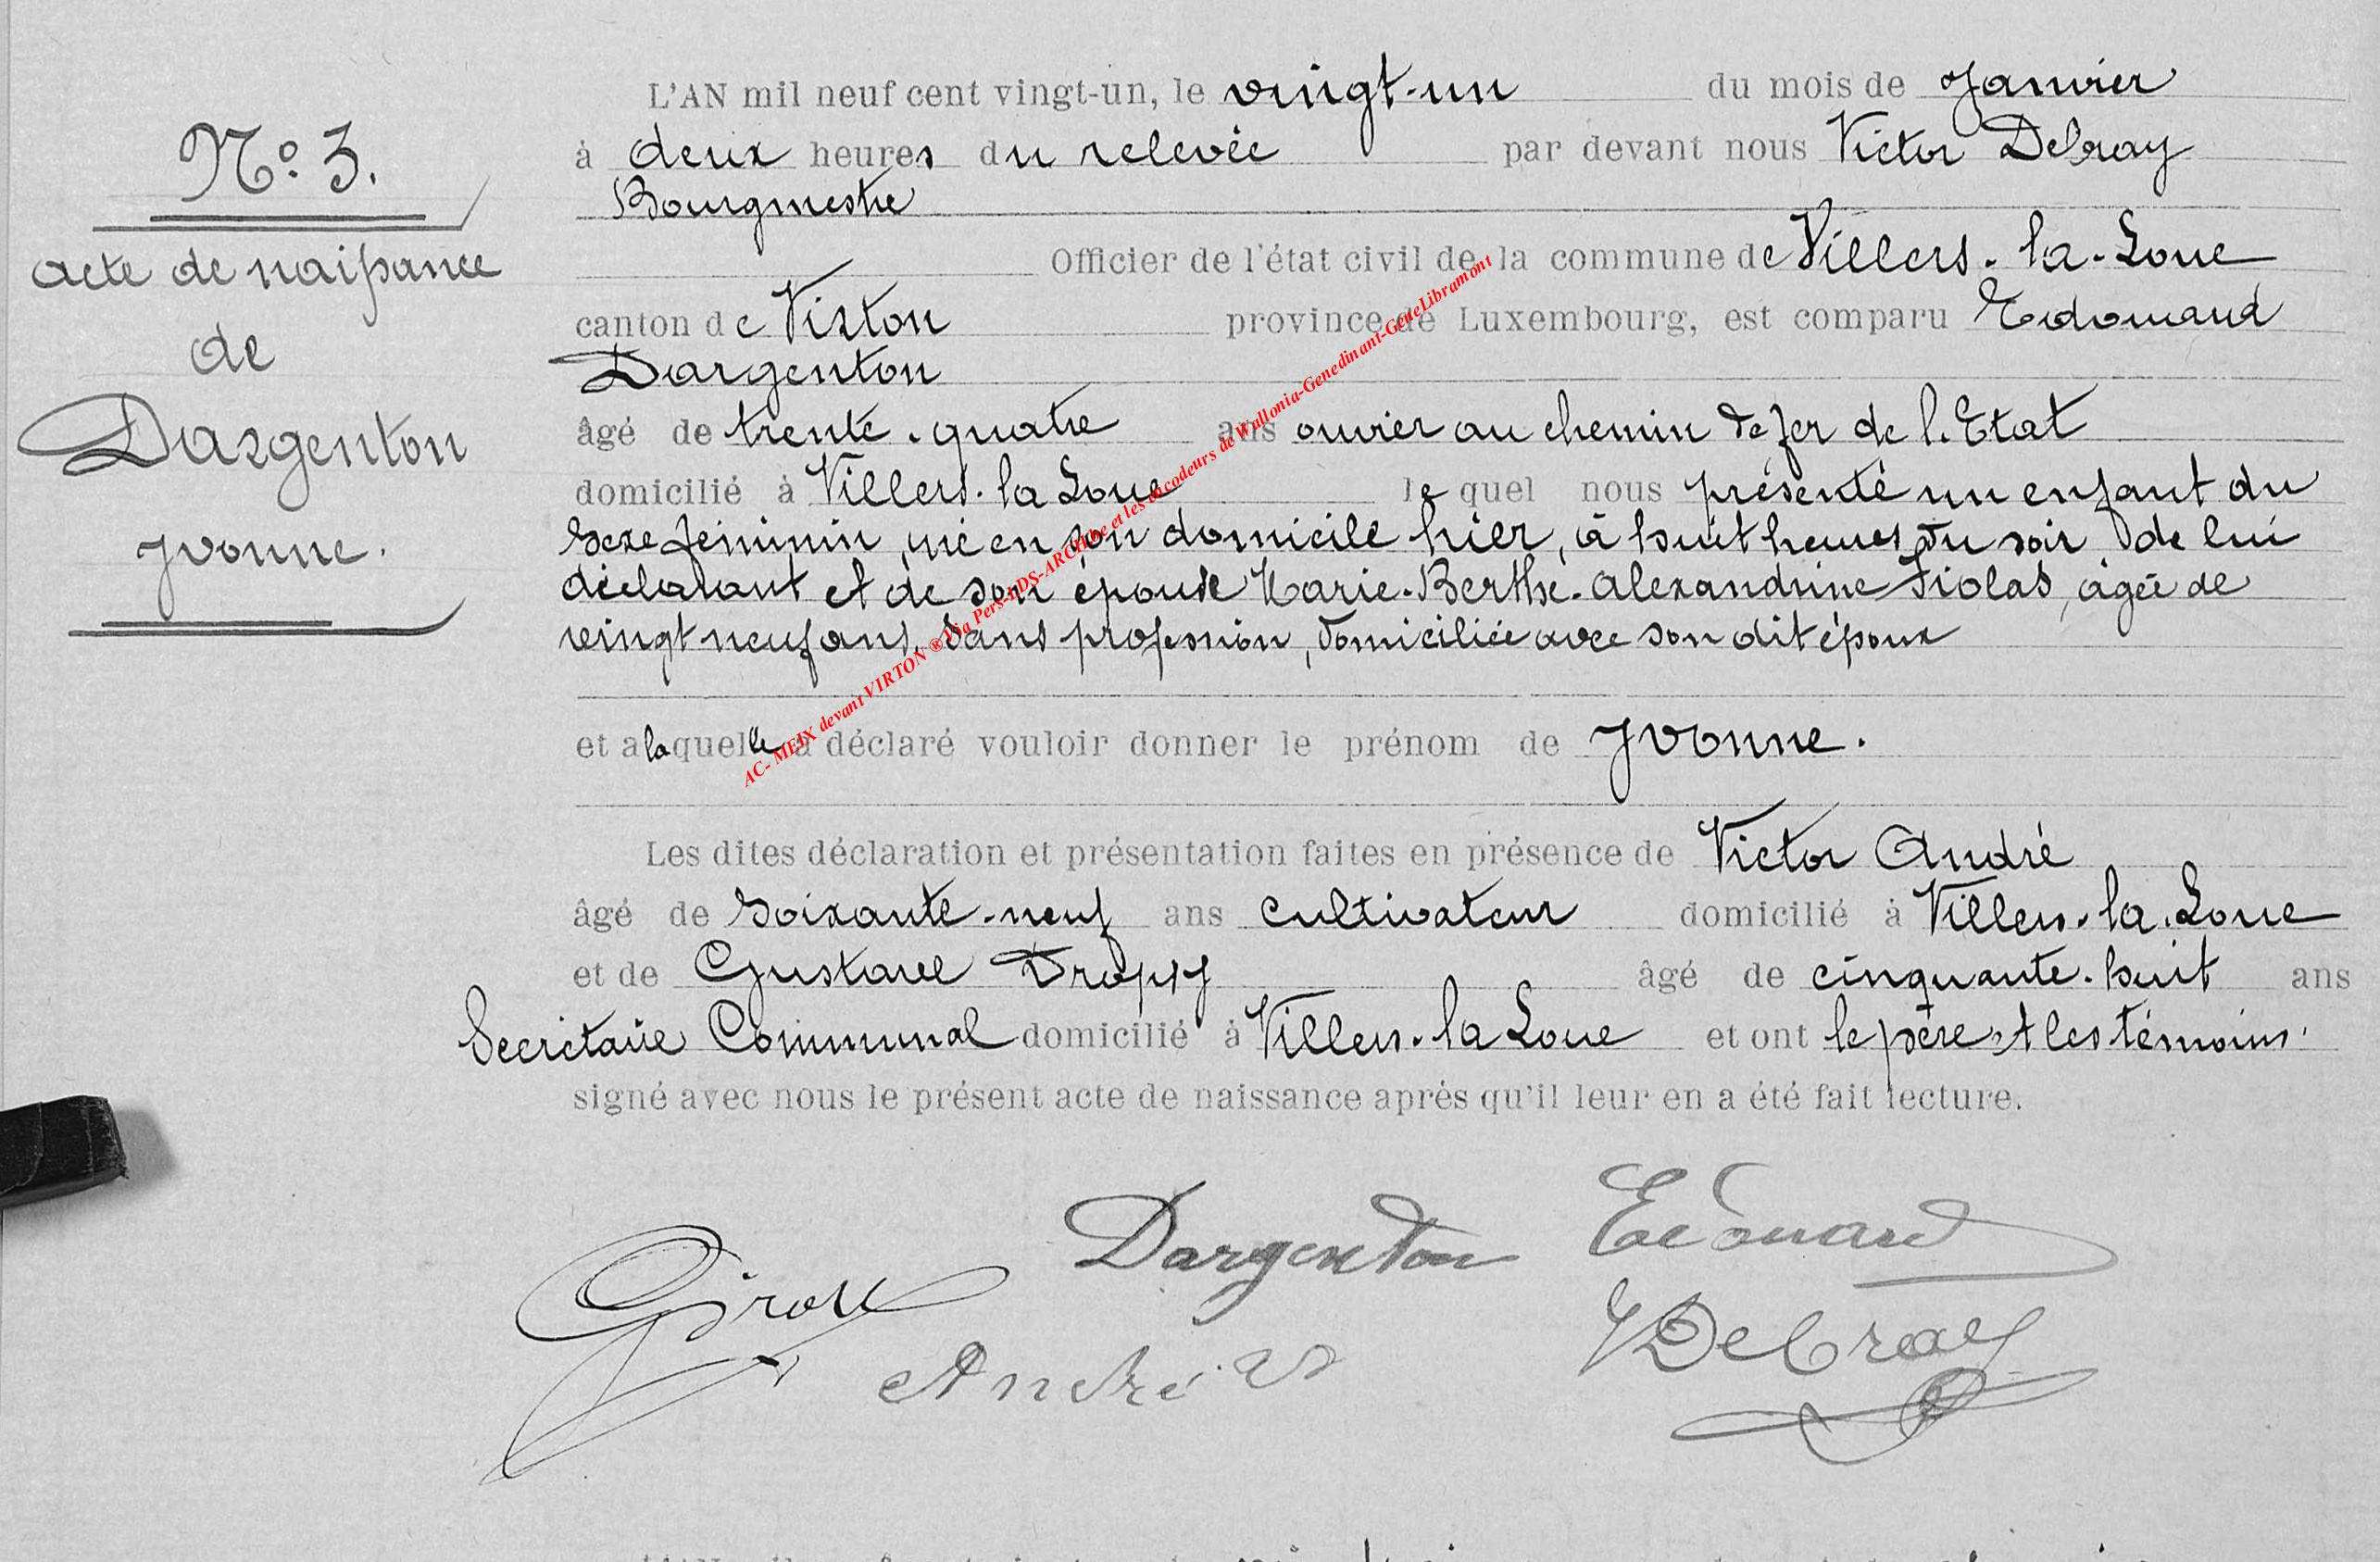 N° 3.
acte de naissance
de
Dargenton
Yvonne.
L'AN mil neuf cent vingt-un, le vingt-un du mois de Janvier
à deux heures du relevée par devant nous Victor Debray
Bourgmestre
Officier de l'état civil de la commune de Villers-la-Loue
canton de Virton province de Luxembourg, est comparu Edouard
Dargenton
âgé de trente-quatre ans ouvrier au chemin de fer de l'Etat
domicilié à Villers-la Loue lequel nous présenté un enfant du
sexe féminin, né en son domicile hier, à huit heures du soir de lui
déclarant et de son épouse Marie-Berthe-Alexandrine Fiolas, âgée de
vingt neuf ans, sans profession, domiciliée avec son dit époux
et a laquelle a déclaré vouloir donner le prénom de Yvonne.
Les dites déclaration et présentation faites en présence de Victor André
âgé de soixante-neuf ans cultivateur domicilié à Villers-la-Loue
et de Gustave Dropsy âgé de cinquante-huit ans
Secrétaire Communal domicilié à Villers-la Loue et ont le père et les témoins
signé avec nous le présent acte de naissance après qu'il leur en a été fait lecture.
Dargenton Edouard
André V
VDebray
AC- MEIX devant VIRTON ® Via Pers-BDS-ARCH.be et les encodeurs de Wallonia-Genedinant-GeneLibramont